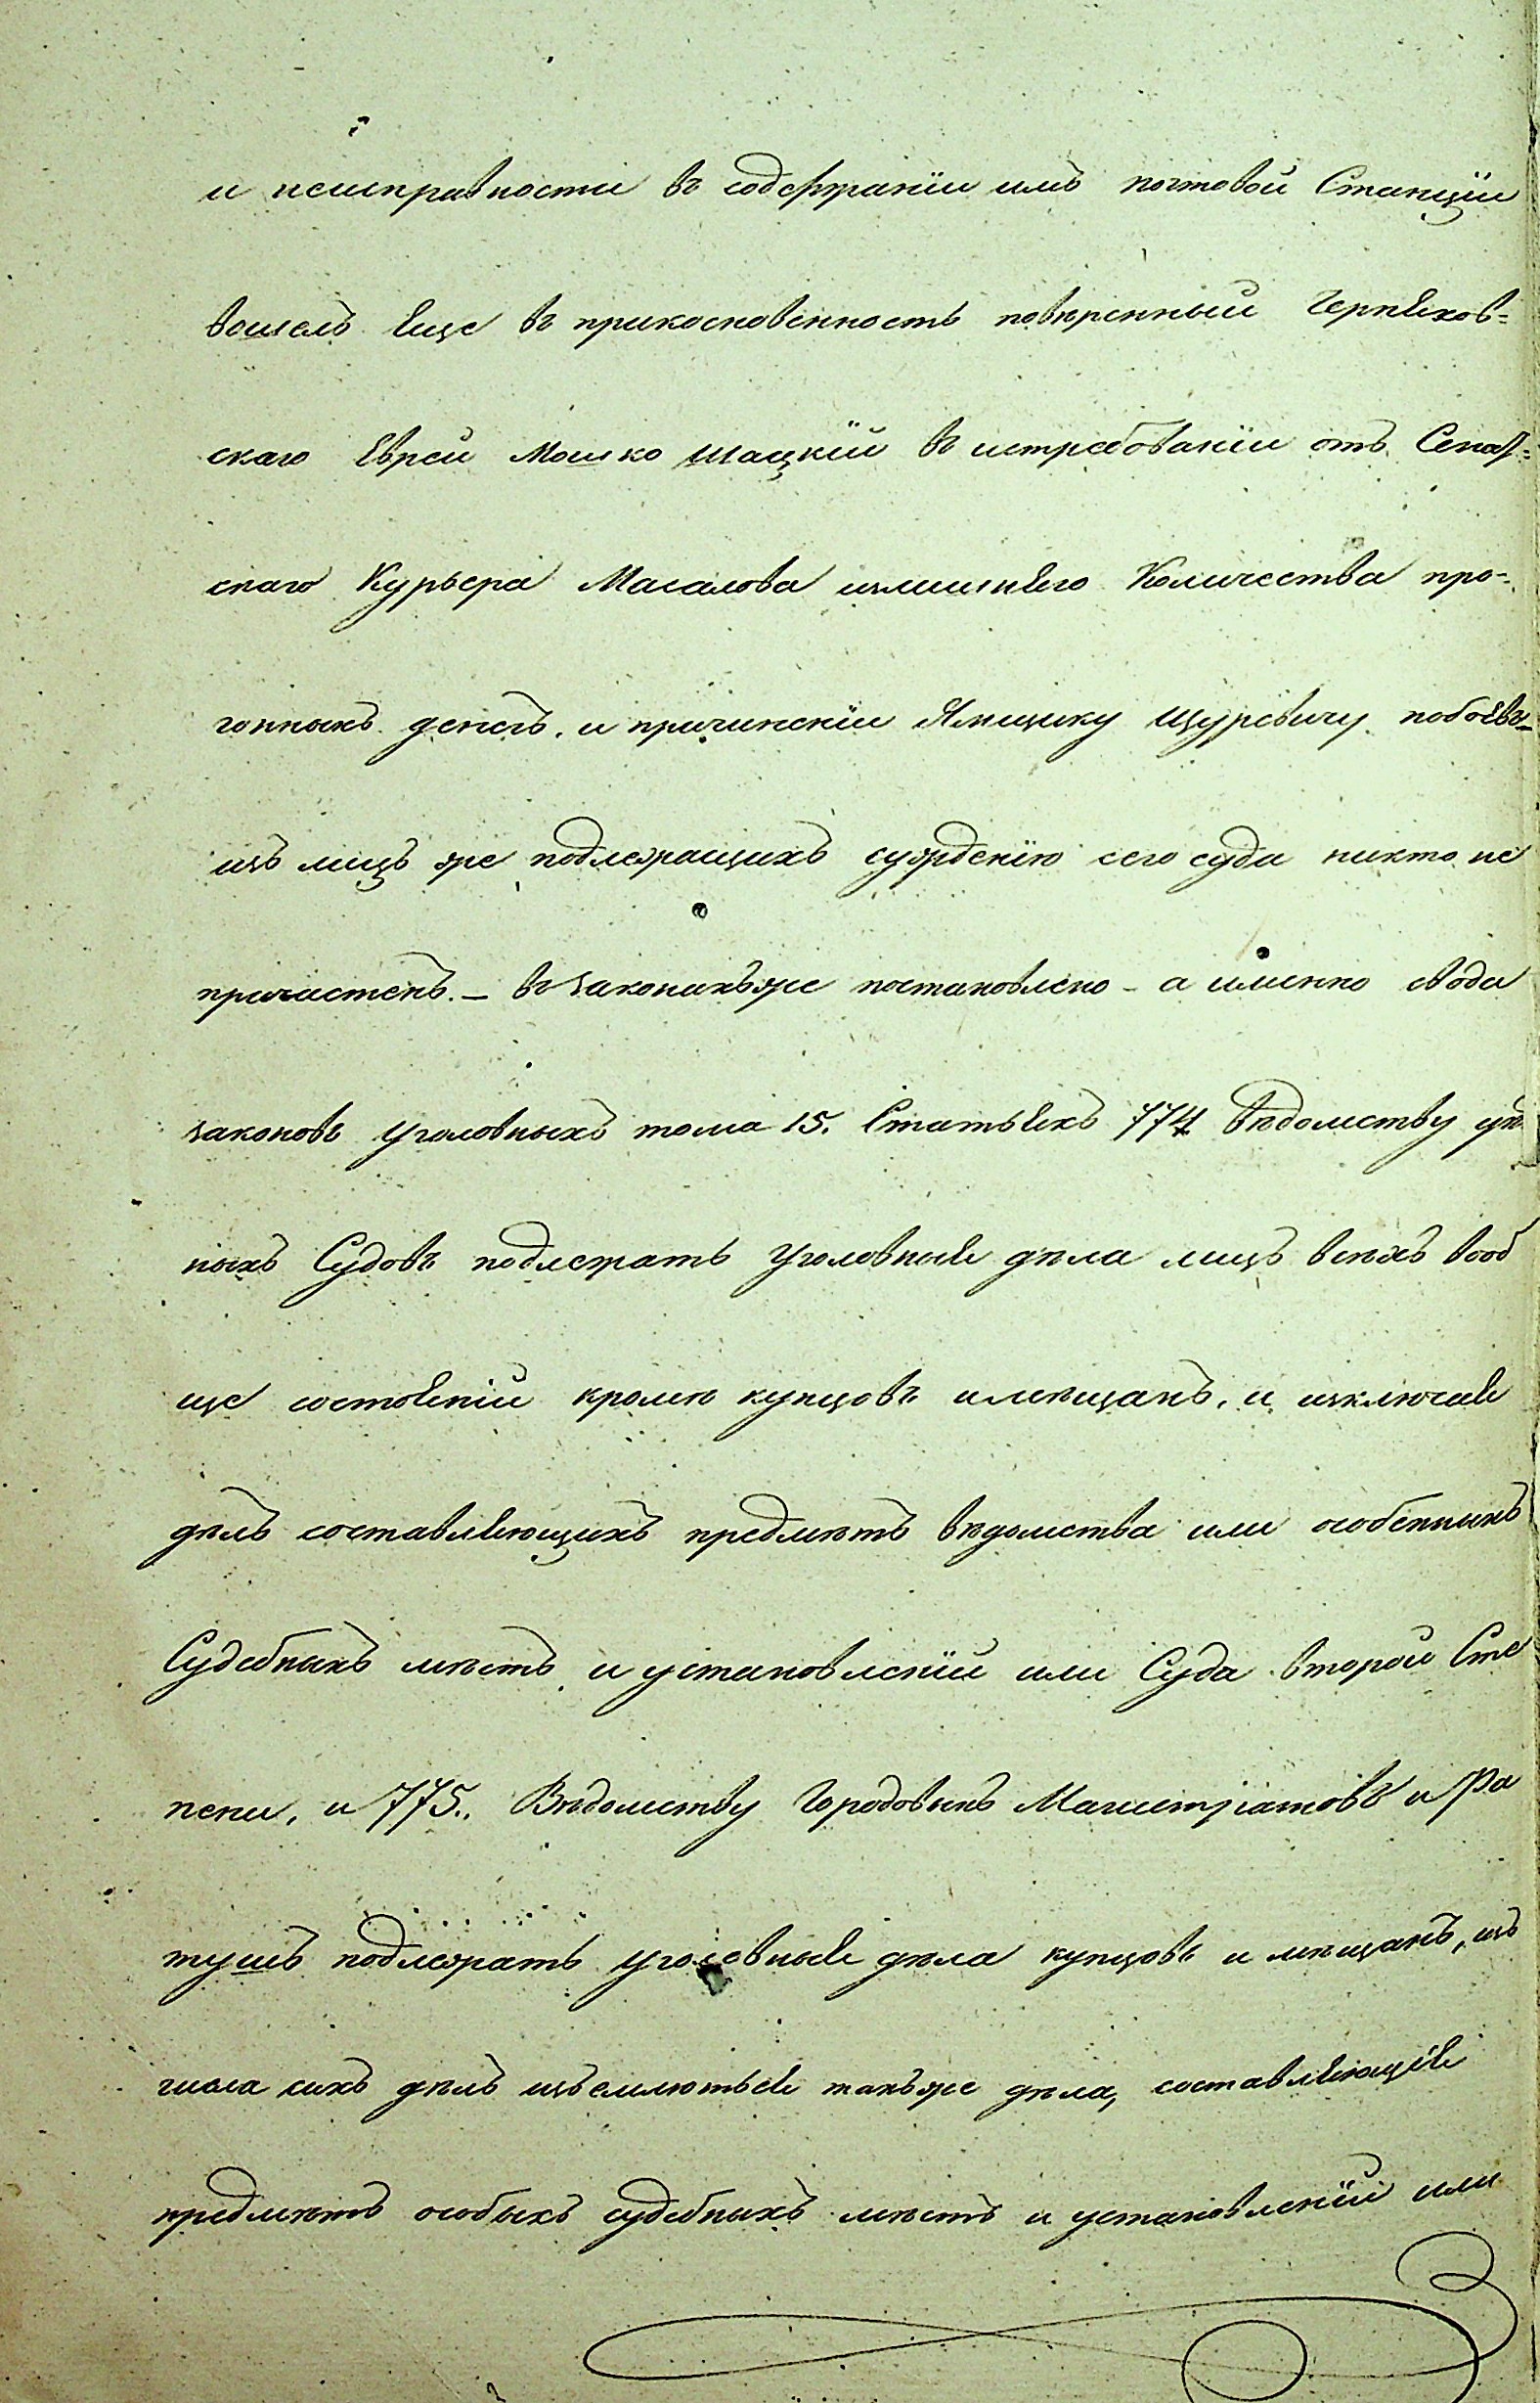 и неисправности въ содержаніи имъ почтовой Станціи
вошелъ еще въ прикосновенность повѣренный Черняхов=
скаго Еврей Мошко Шацкій въ истребованіи отъ Сенат=
скаго Курьера Масалова излишняго Количества про=
гонныхъ денегъ, и причиненіи Ямщику Щуревичу побоевъ_
изъ лицъ же подлежащихъ сужденію сего суда никто не
причастенъ. – въ законахъ же постановлено – а именно свода
законовъ уголовныхъ тома 15. Статьяхъ 774 Вѣдомству уѣ
ныхъ Судовъ подлежатъ Уголовныя дѣла лицъ всѣхъ вооб
ще состояній кромѣ купцовъ и мѣщанъ, и изключая
дѣлъ составляющихъ предмѣтъ вѣдомства или особенныхъ
Судебныхъ мѣстъ и установленій или Суда второй Сте
пени, и 775. Вѣдомству Городовыхъ Магистратовъ и Ра
тушъ подлежатъ уголовныя дѣла купцовъ и мѣщанъ, изъ
числа сихъ дѣлъ изъемлються такъ же дѣла, составляющія
предмѣтъ особыхъ судебныхъ мѣстъ и установленій или